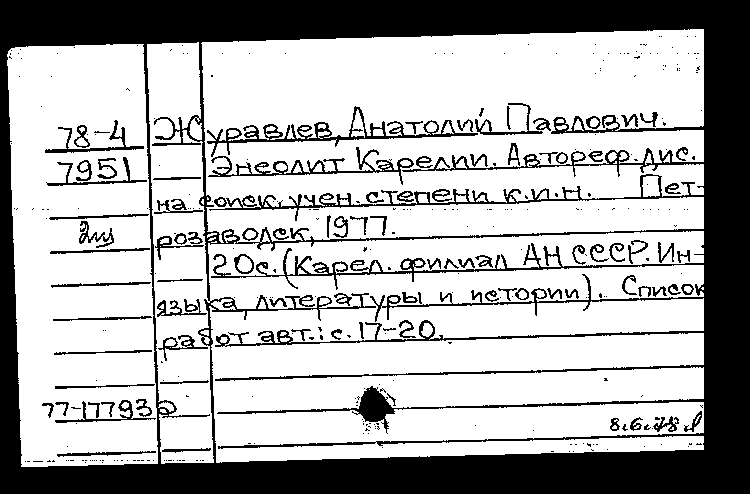 78-4 Журавлев, Анатолий Павлович.
7951 Энеолит Карелии. Автореф. дис.
на соиск. учен. степени к.и.н. Пет-
2 розаводск, 1977.
20с. (Карел. филиал АН СССР. Ин-
языка, литературы и истории). Список
работ авт.: с. 17-20.
77-17793
8.6.78